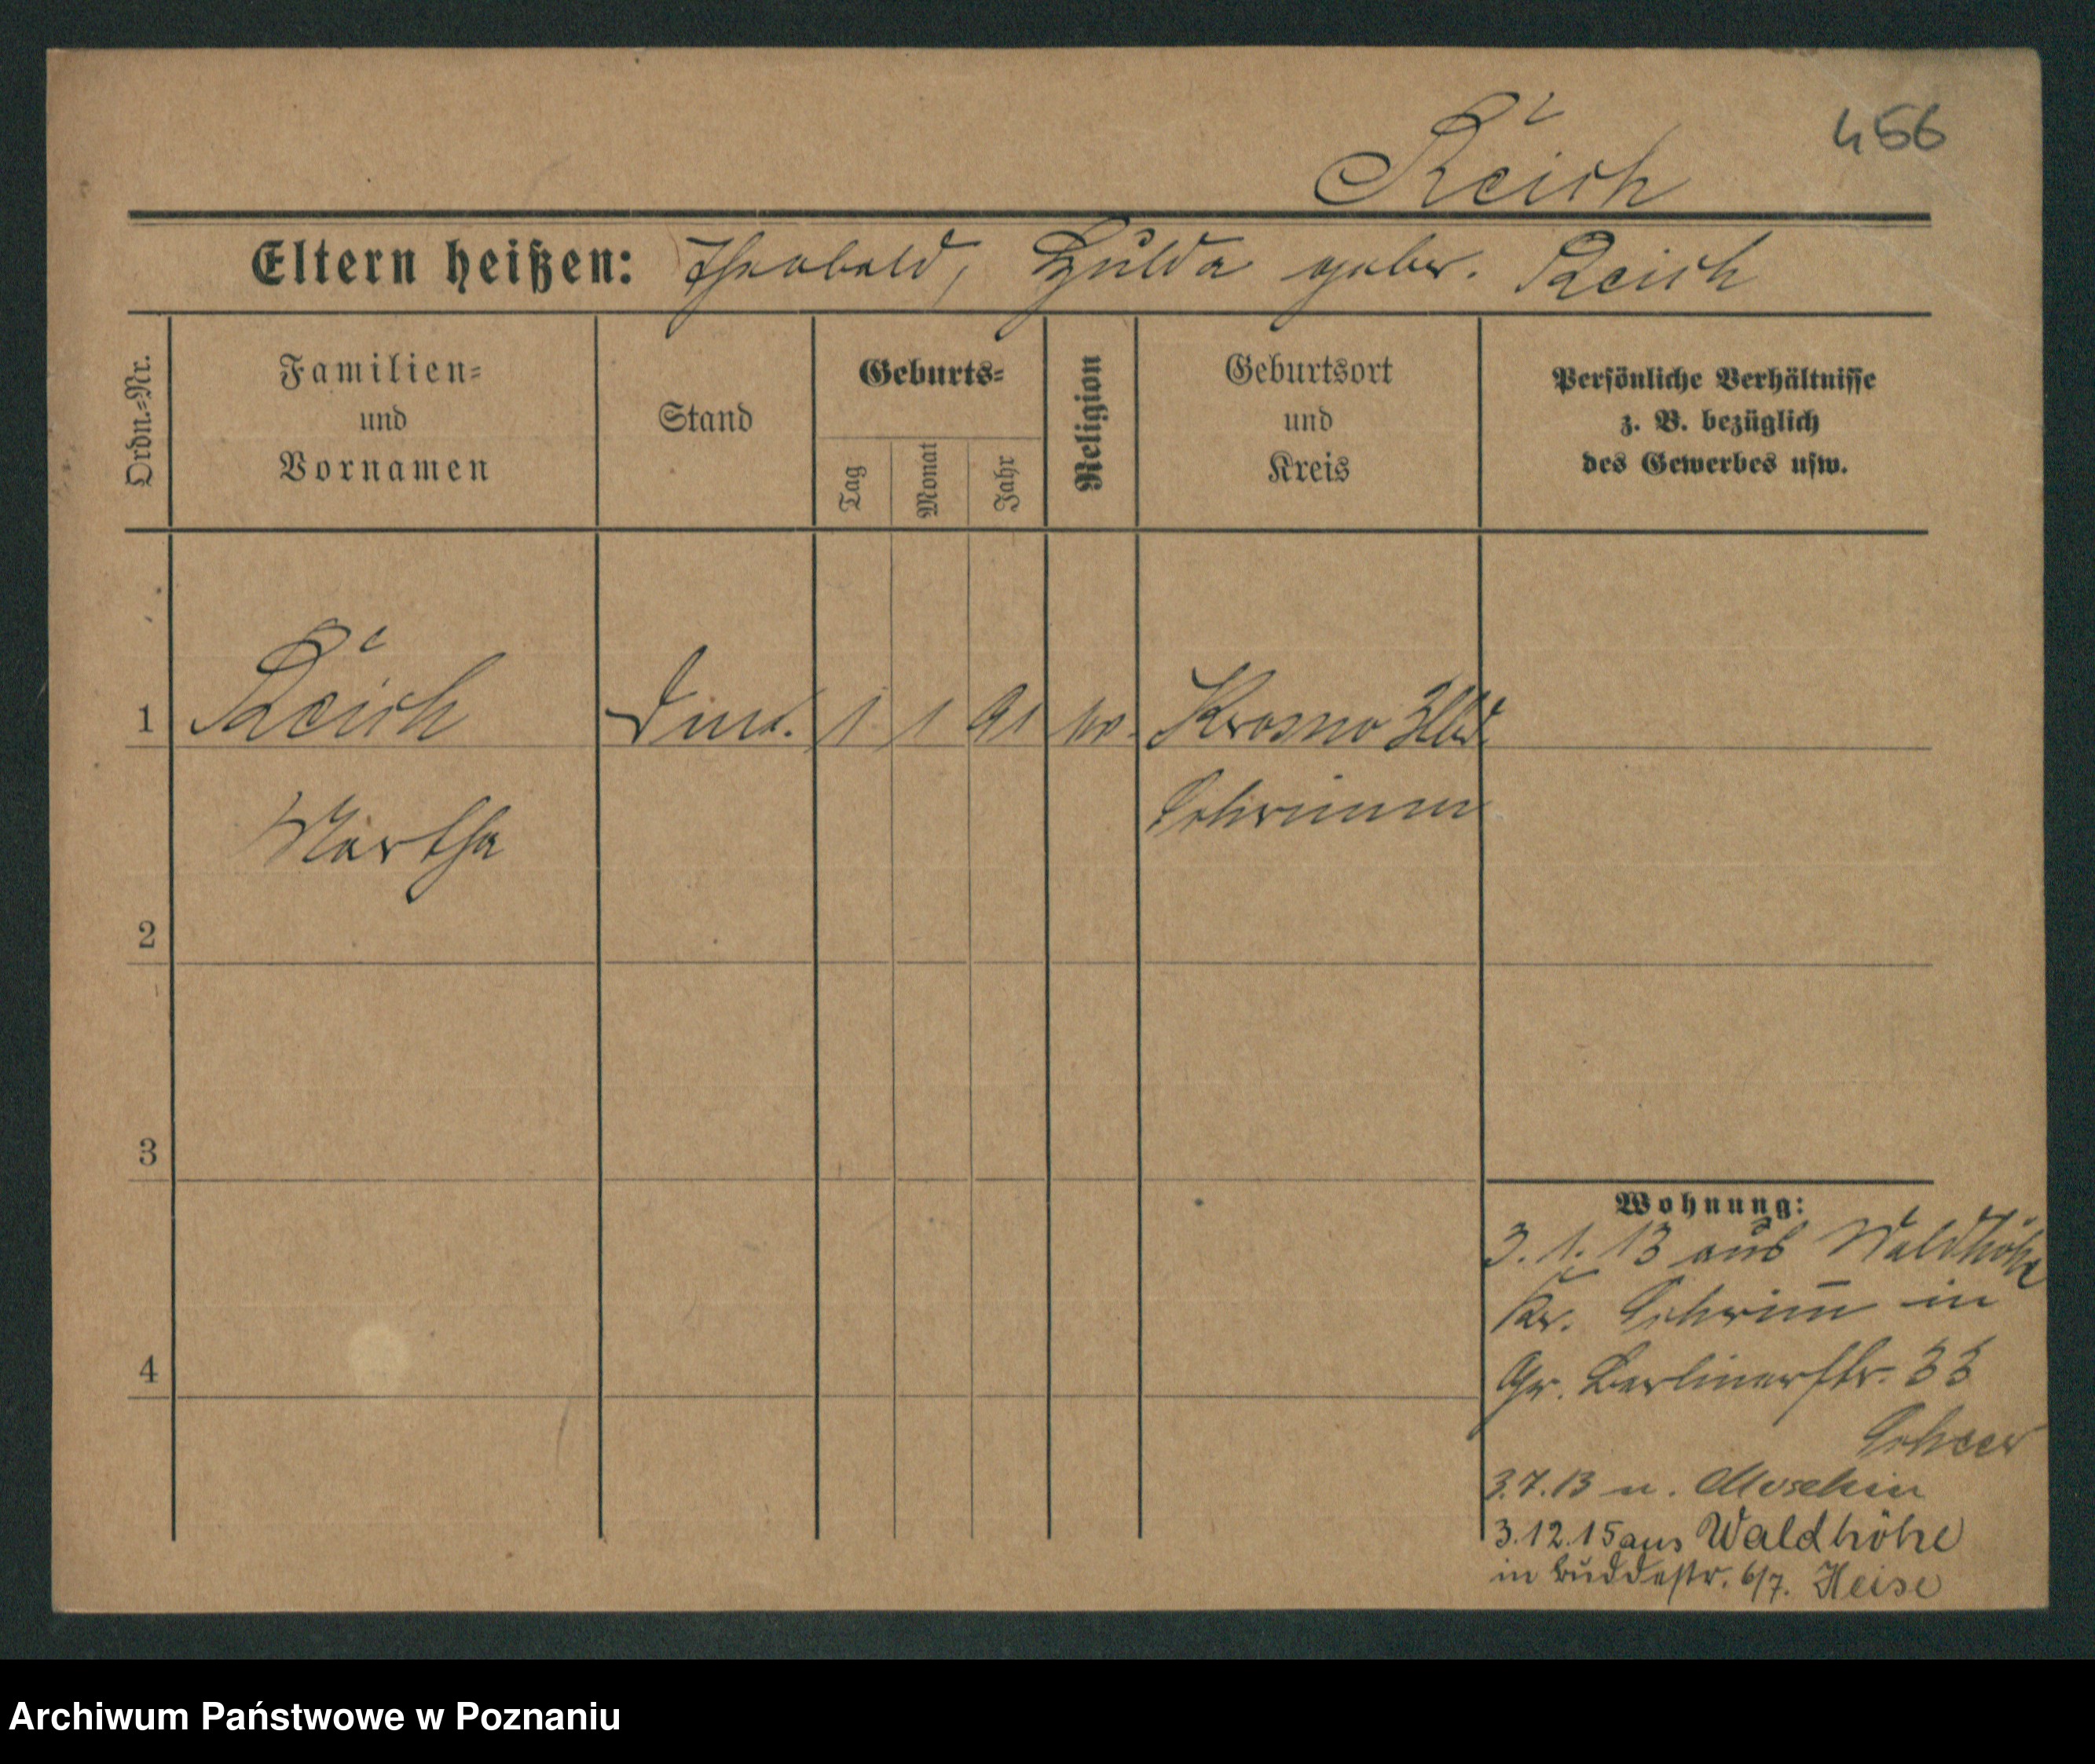 456
Reich
Eltern heißen: Theobald, Hulda geber. Reich
Ordn.=Nr.
Familien=
und
Vornamen
Stand
Geburts=
Tag
Monat
Jahr
Religion
Geburtsort
und
Kreis
Persönliche Verhältnisse
z. B. bezüglich
des Gewerbes usw.
1 Reich 1 1 91 ev. Krosno Hld.
Martha Schrimm
2
3
4
Wohnung:
3. 1. 13 aus Waldhöhe
Kr. Schrimm in
Gr. Berlinerstr. 33
Scheer
3.7.13 n. Moschin
3.12.15 aus Waldhöhe
in Buddestr. 6/7. Heise
Archiwum Państwowe w Poznaniu